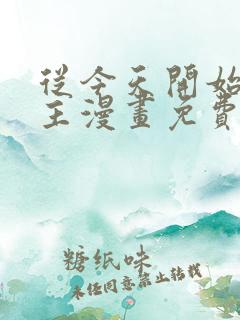 從今天開始
王漫畫免費
糖纸味
未任同意禁止转载